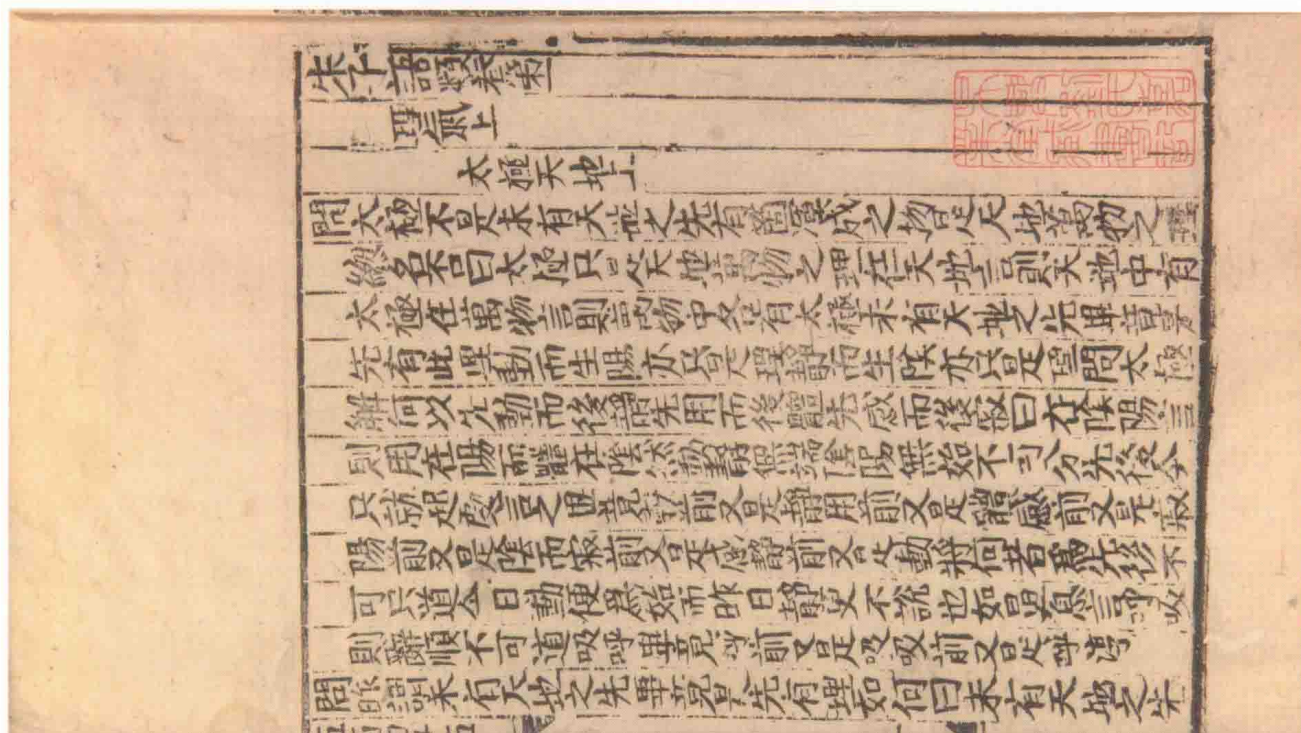 朱子語類卷第一
理氣上
太極天地上
問太極不是未有天地之先有箇渾成之物是天地萬物之理
緫名否曰太極只是天地萬物之理在天地言則天地中有
太極在萬物言則萬物中各有太極未有天地之先畢竟是
先有此理動而生陽亦只是理靜而生陰亦只是理問太極
解何以先動而後靜先用而後體先感而後寂曰在陰陽言
則用在陽而體在陰然動靜無端陰陽無始不可分先後今
只就起處言之畢竟動前又是靜用前又是體感前又是寂
陽前又是陰而寂前又是感靜前又是動將何者爲先後不
可只道今日動便爲始而昨日靜更不說也如鼻息言呼吸
則辭順不可道吸呼畢竟呼前又是吸吸前又是呼淳
問昨謂未有天地之先畢竟是先有理如何曰未有天地之先